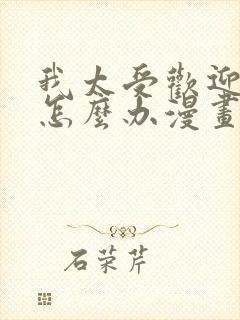 我太受歡迎
怎麼办漫畫
石荣芹